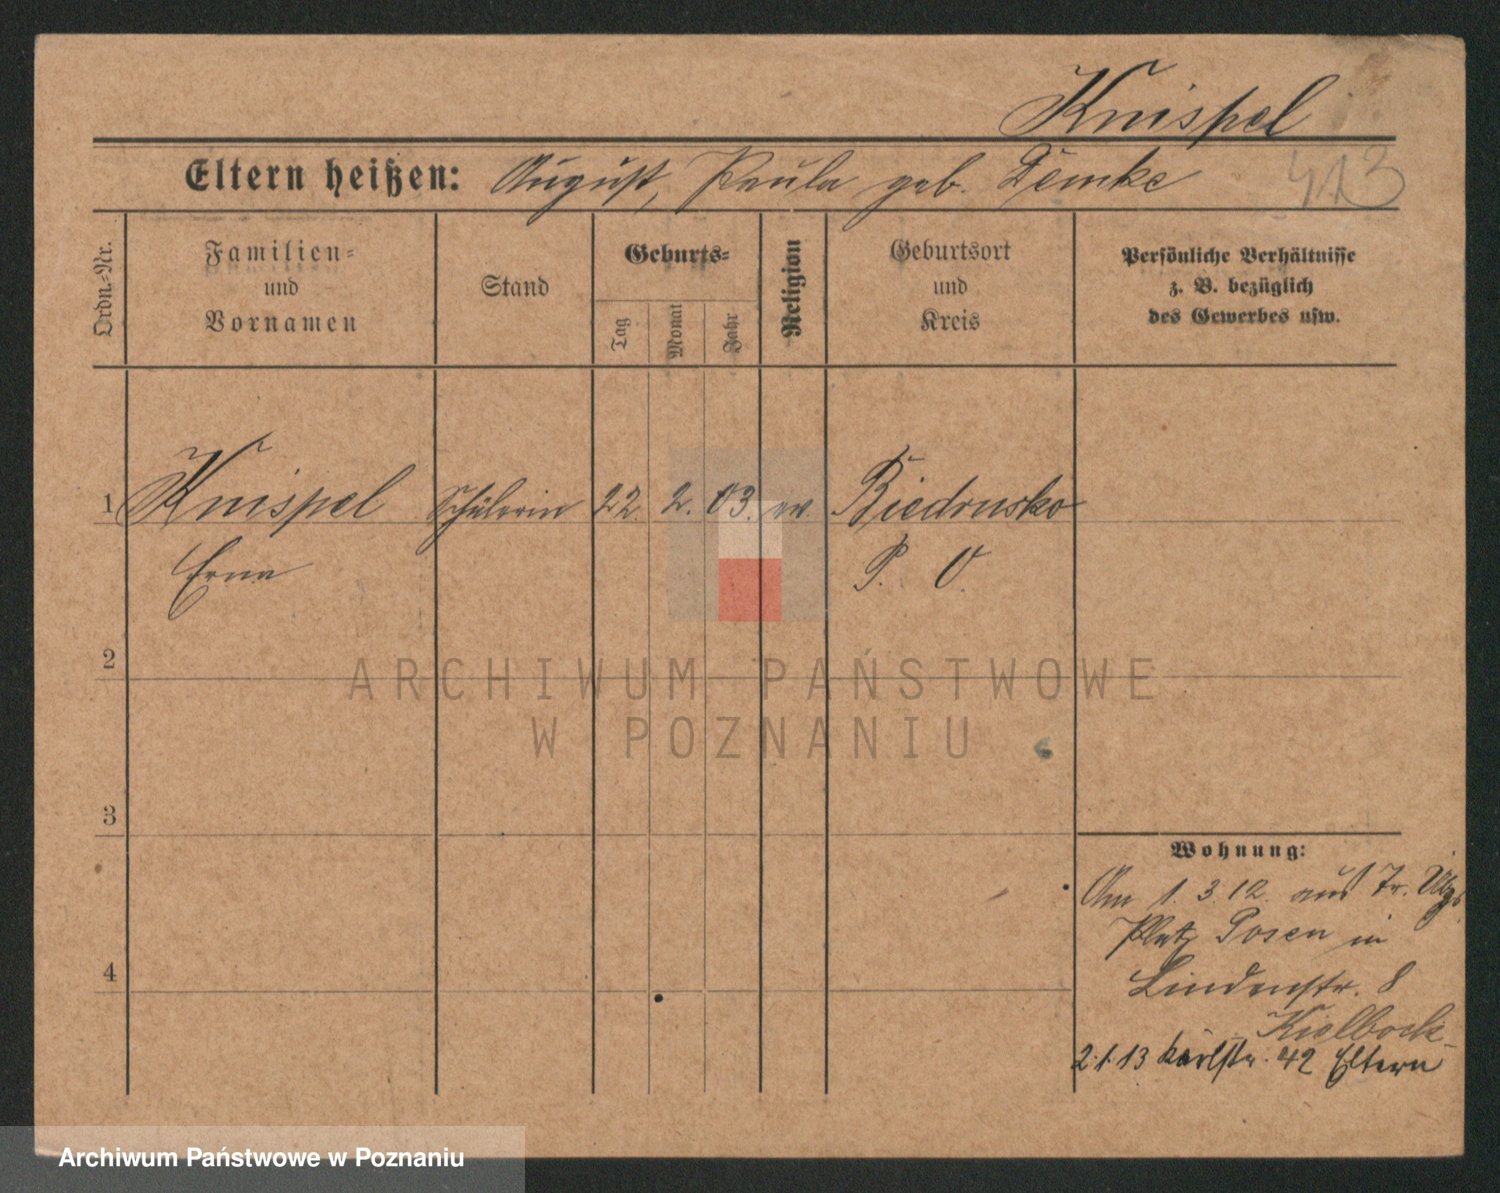 Knispel
Eltern heißen: August, Paula geb. Lemke
413
Ordn.-Nr.
Familien-
und
Vornamen
Stand
Geburts-
Tag
Monat
Jahr
Religion
Geburtsort
und
Kreis
Persönliche Verhältnisse
z. B. bezüglich
des Gewerbes usw.
1 Knispel Schülerin 22. 2. 03. ev. Biedrusko
Erna P. O.
2
3
4
Wohnung:
Am 1. 3. 12. aus Tr. Übgs
Platz Posen in
Lindenstr. 8
Kielbock
2.1.13 Karlstr. 42 Eltern
ARCHIWUM PAŃSTWOWE
W POZNANIU
Archiwum Państwowe w Poznaniu